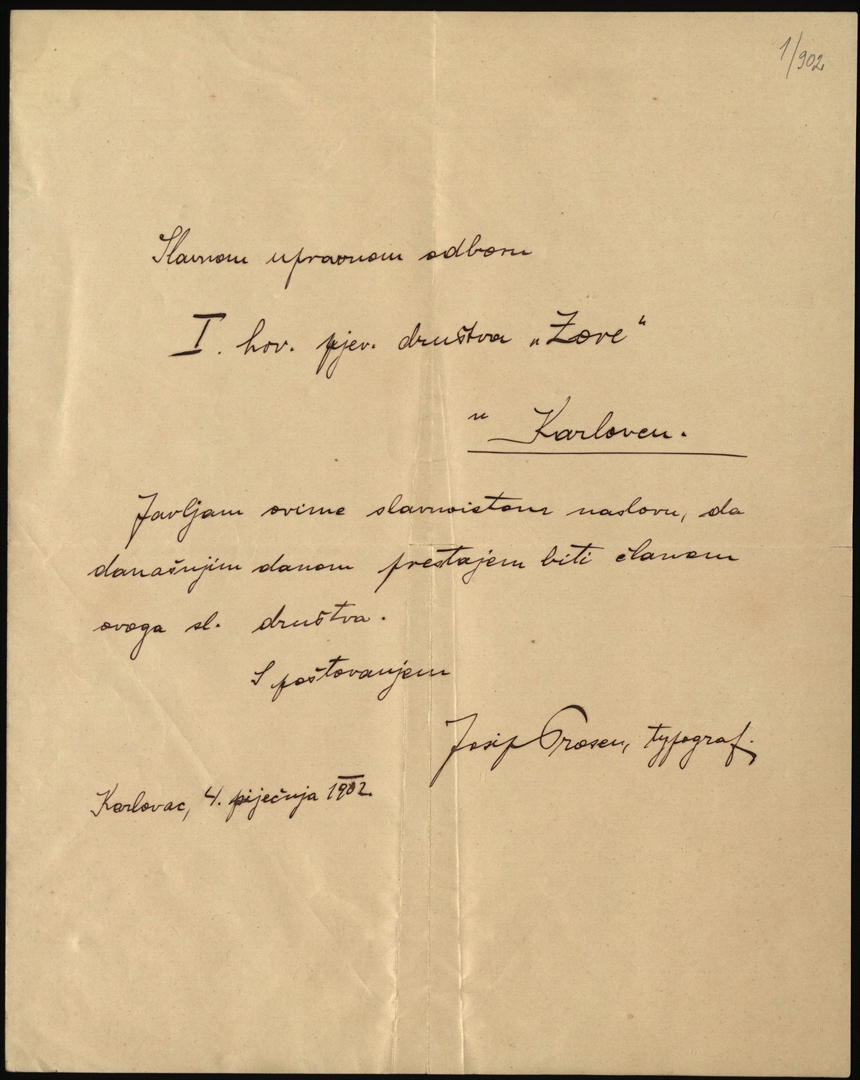 1/902
Slavnom upravnom odboru
I. hrv. pjev. društva „Zore“
u Karlovcu.
Javljam ovime slavnoistom naslovu, da
današnjim danom prestajem biti članom
ovoga sl. društva.
S poštovanjem
Josip Prosen, typograf.
Karlovac, 4. siječnja 1902.